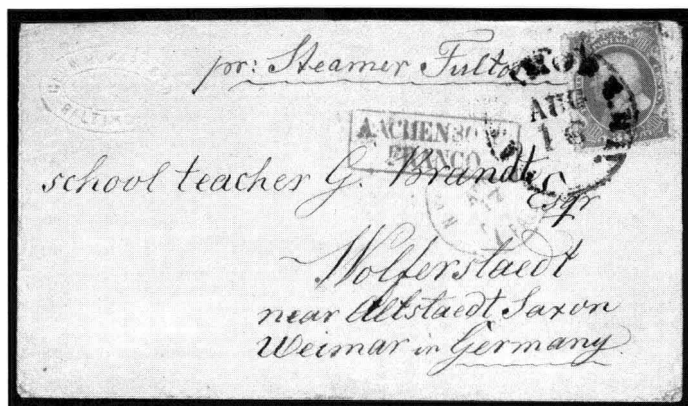 pr: Steamer Fulton
AUG
16
AACHEN 30
FRANCO
school teacher G. Brandt
Esqr
Wolferstaedt
near Altstaedt Saxon
Weimar in Germany